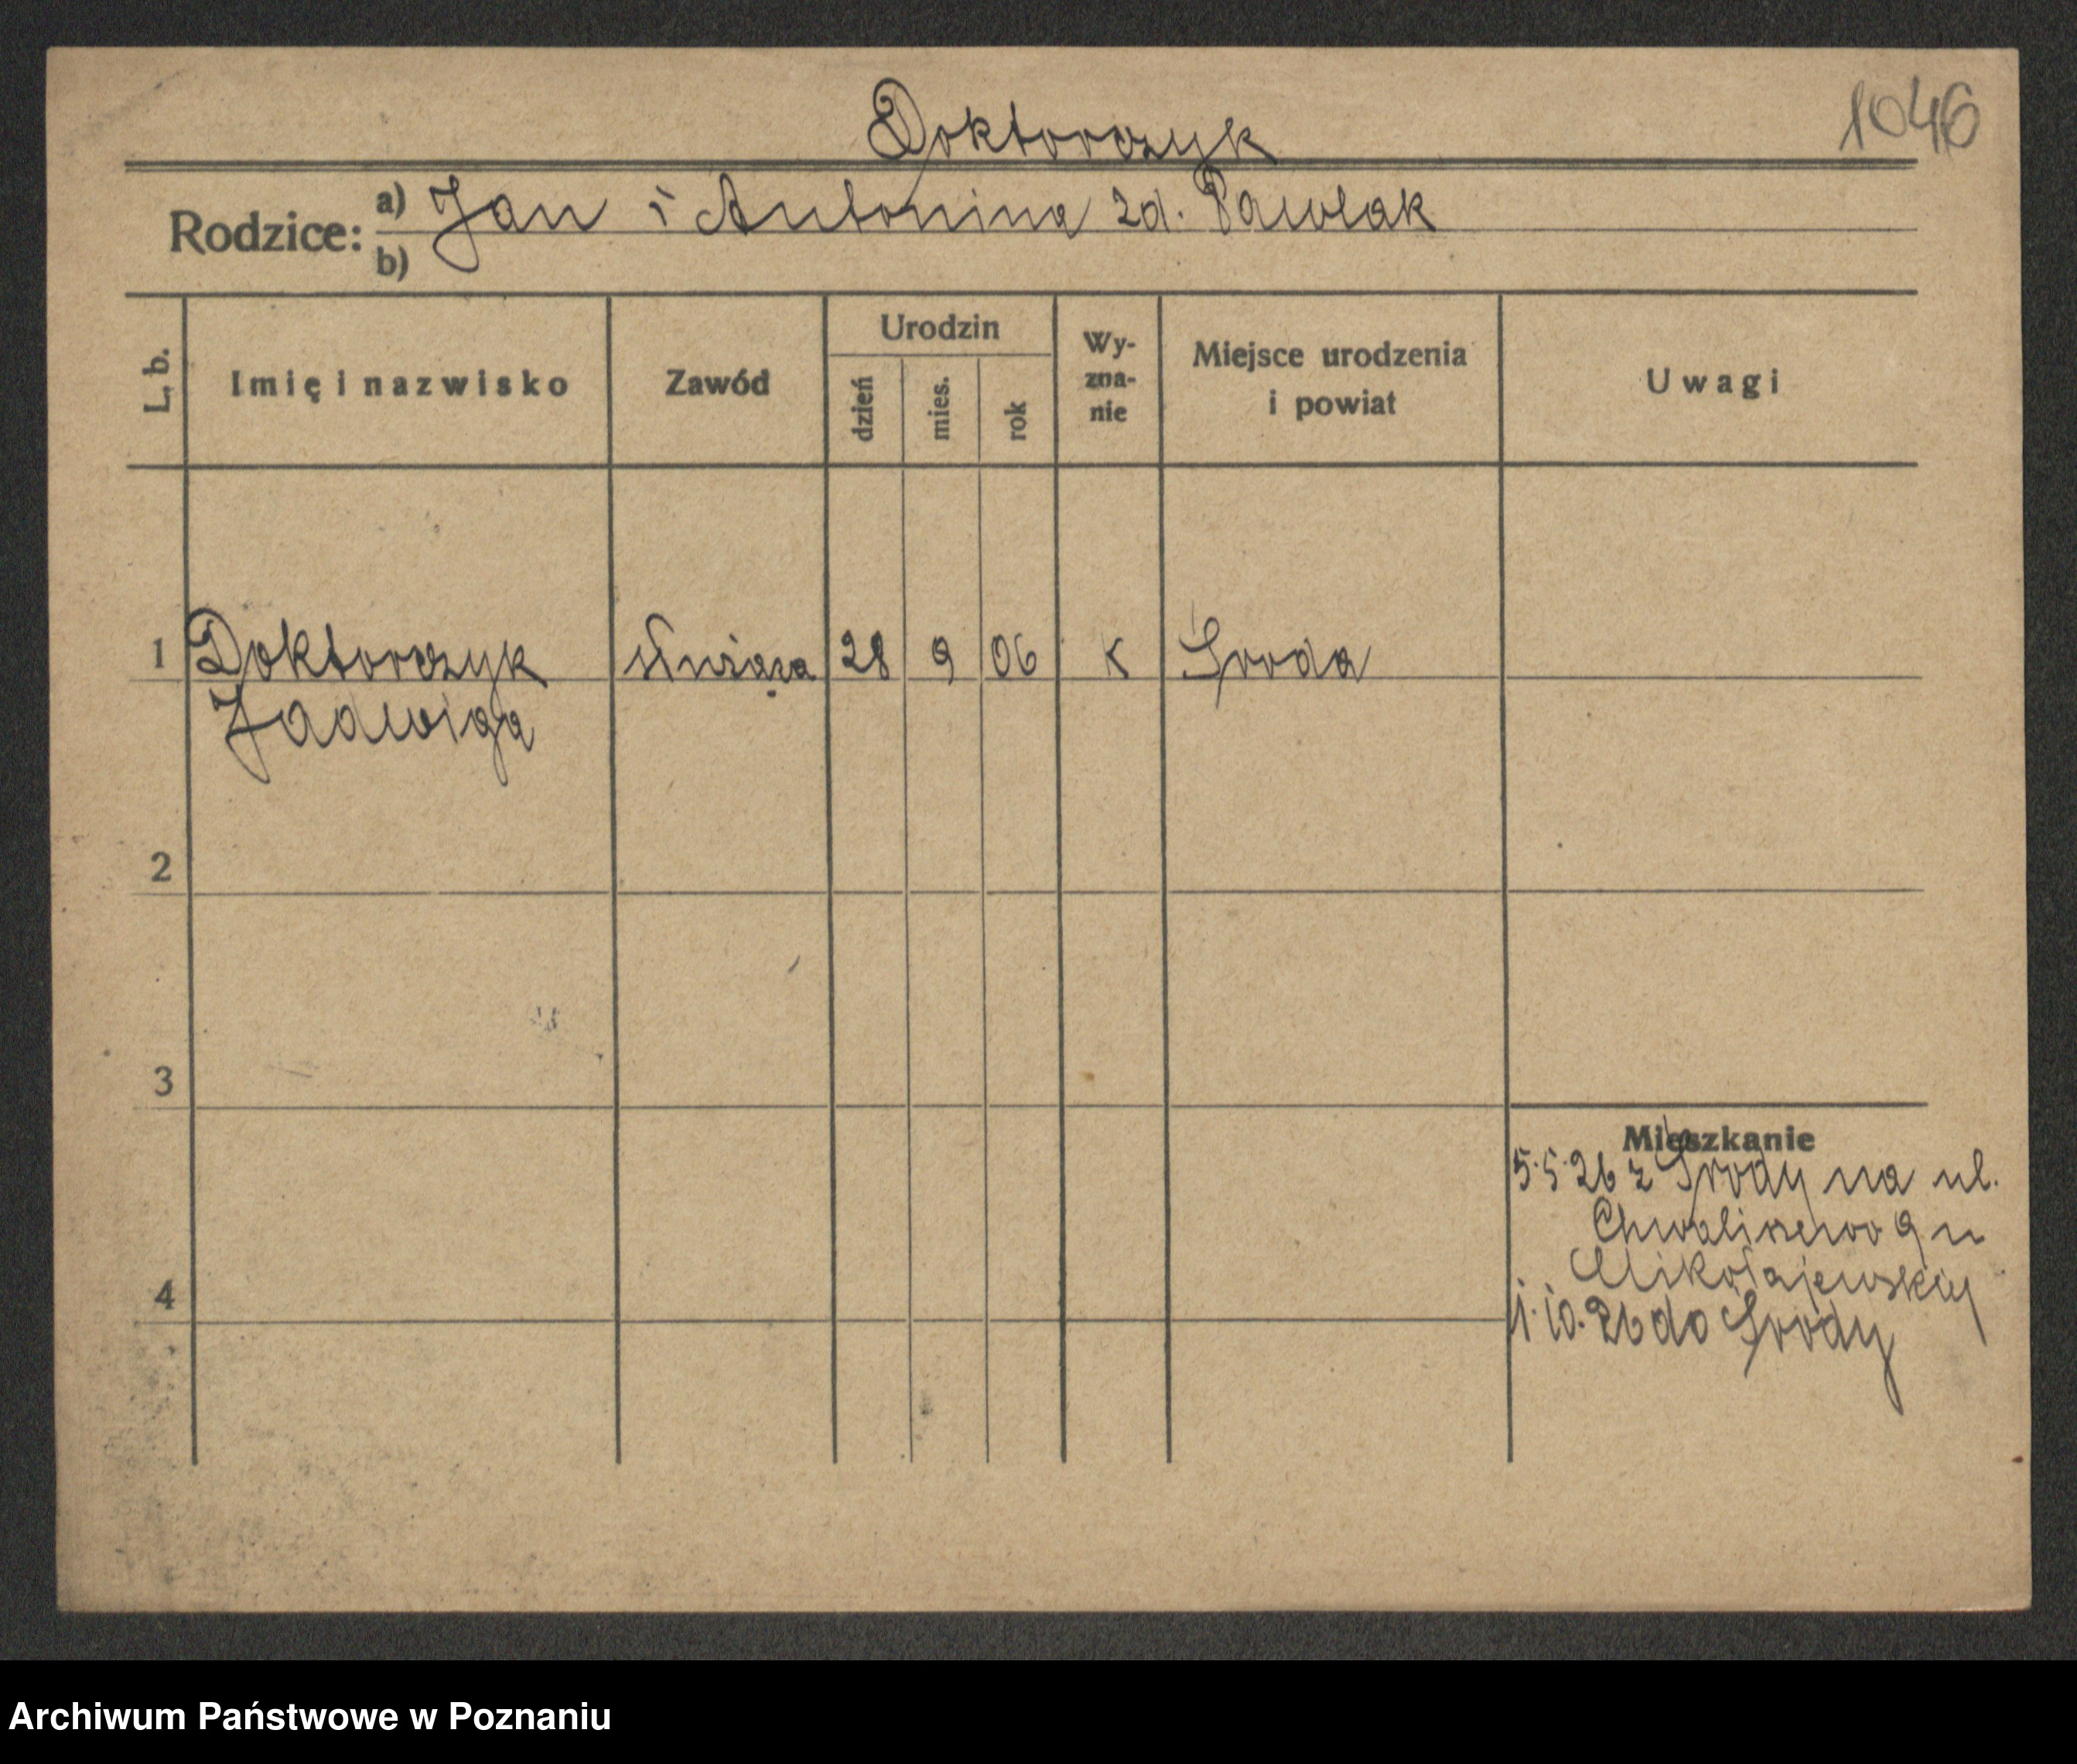 Doktorczyk
1046
Rodzice: a) Jan i Antonina zd. Pawlak
b)
L. b.
Imię i nazwisko
Zawód
Urodzin
dzień
mies.
rok
Wy-
zna-
nie
Miejsce urodzenia
i powiat
Uwagi
1 Doktorczyk służąca 28 9 06 K Środa
Jadwiga
2
3
4
Mieszkanie
5.5.26 z Środy na ul.
Chwaliszewo 9 u
Mikołajewskiej
1.10.26 do Środy
Archiwum Państwowe w Poznaniu